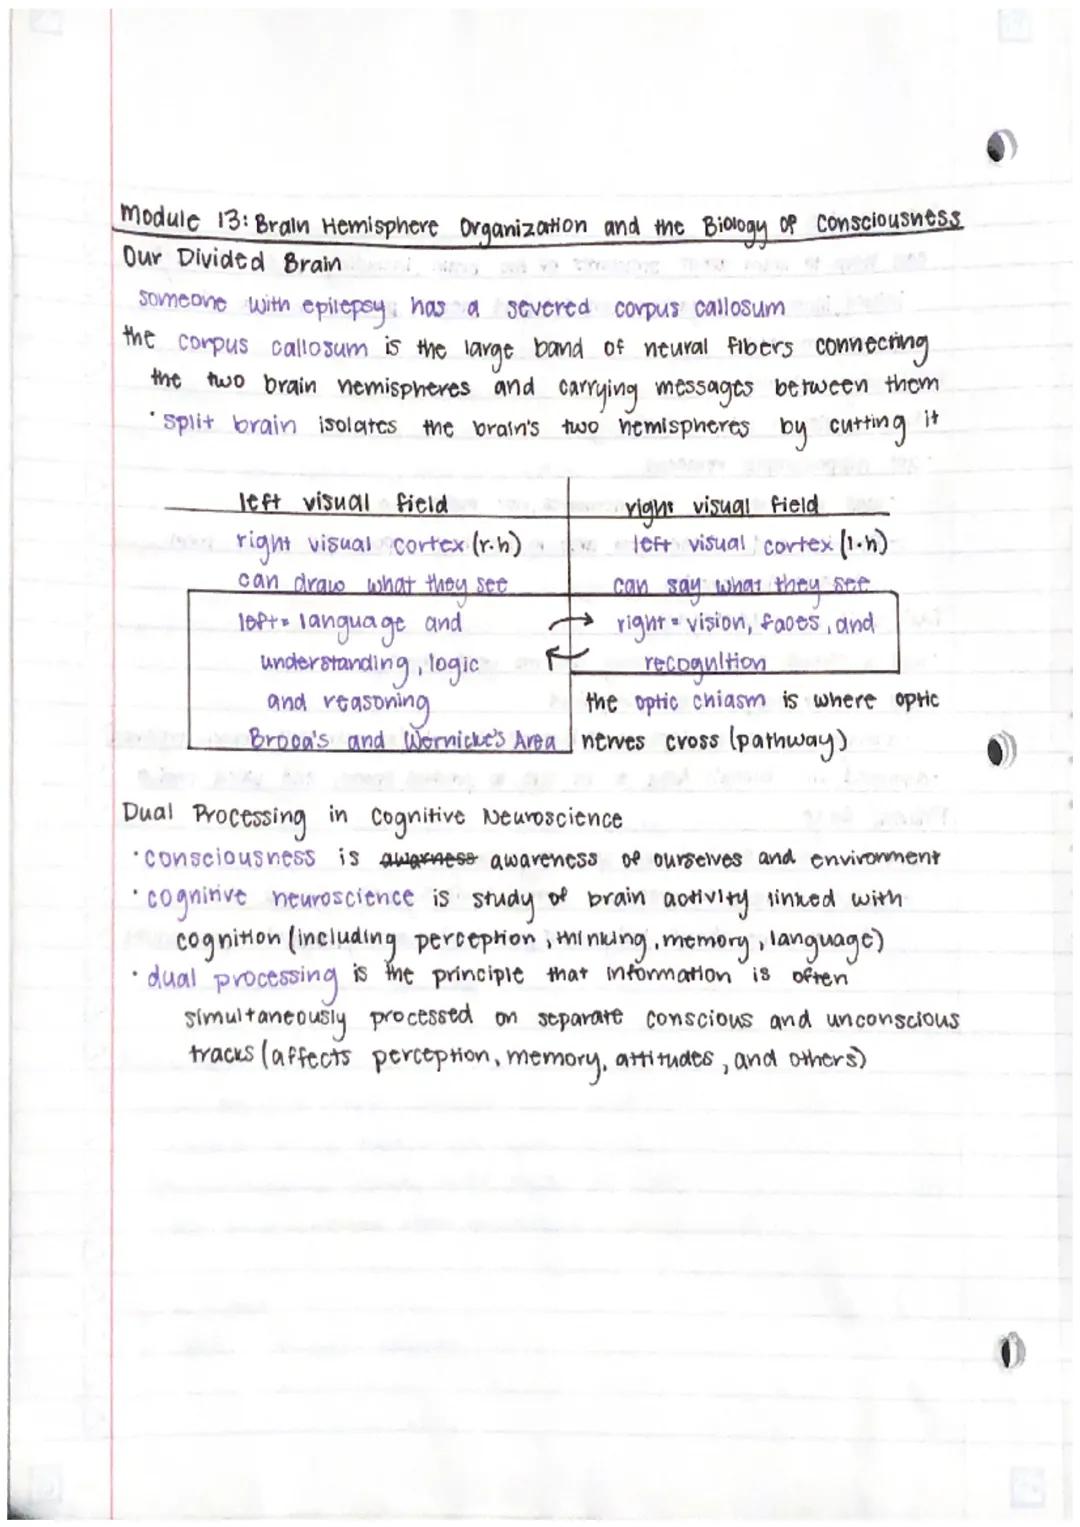 Module 13: Brain Hemisphere Organization and the Biology of Consciousness
Our Divided Brain
someone with epilepsy has a severed corpus callosum
the corpus callosum is the large band of neural fibers connecting
the two brain hemispheres and carrying messages between them
· split brain isolates the brain's two hemispheres by cutting it
left visual field right visual field
right visual cortex (r.h) left visual cortex (l.h)
can draw what they see can say what they see
left = language and → right = vision, faces, and
understanding, logic ← recognition
and reasoning the optic chiasm is where optic
Broca's and Wernicke's Area nerves cross (pathway)
Dual Processing in Cognitive Neuroscience
· consciousness is awarness awareness of ourselves and environment
· cognitive neuroscience is study of brain activity linked with
cognition (including perception, thinking, memory, language)
· dual processing is the principle that information is often
simultaneously processed on separate conscious and unconscious
tracks (affects perception, memory, attitudes, and others)